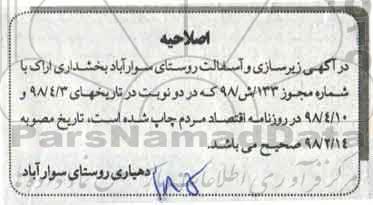 اصلاحیه
در آگهی زیرسازی و آسفالت روستای سوارآباد بخشداری اراک با
شماره مجوز ۱۳۳/ش/۹۸ که در دو نوبت در تاریخهای ۹۸/۴/۳ و
۹۸/۴/۱۰ در روزنامه اقتصاد مردم چاپ شده است، تاریخ مصوبه
۹۸/۲/۱۴ صحیح می باشد.
دهیاری روستای سوار آباد
ParsNamadData